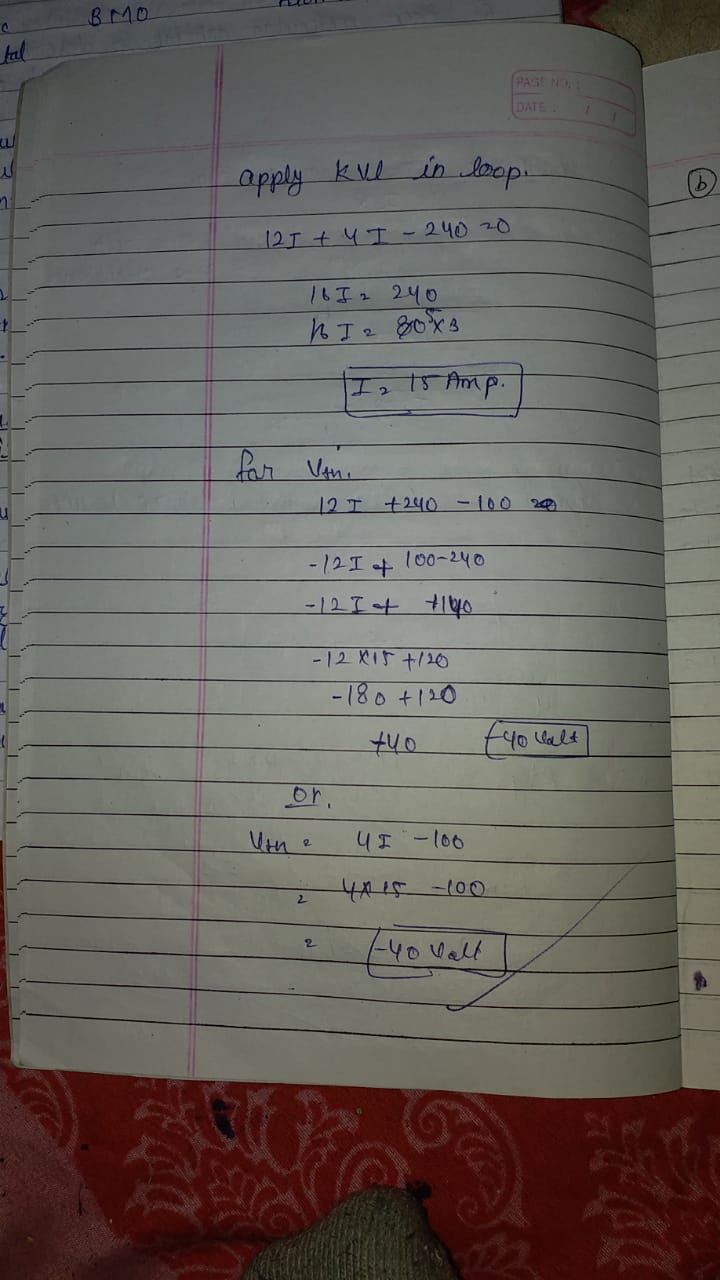 BMO
tal
PAGE NO. :
DATE . / /
apply KVL in loop.
(b)
12I + 4I - 240 = 0
16I = 240
16 I = 80 5 x 3
I = 15 Amp.
for Vth.
12 I + 240 - 100
-12I + 100-240
-12I + +140
-12 x 15 +120
-180 +120
+40 -40 Volt
or.
Vth = 4I - 100
= 4 x 15 - 100
= -40 Volt